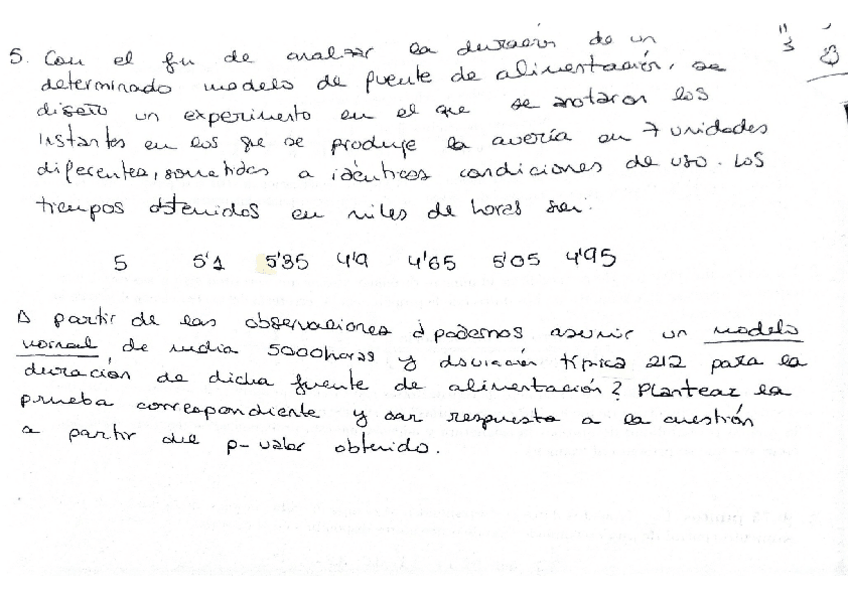 5. Con el fin de analizar la duración de un
determinado modelo de fuente de alimentación, se
diseñó un experimento en el que se anotaron los
instantes en los que se produje la avería en 7 unidades
diferentes, sometidas a idénticas condiciones de uso. Los
tiempos obtenidos en miles de horas son:
5 5'1 5'35 4'9 4'65 5'05 4'95
A partir de las observaciones ¿podemos asumir un modelo
normal de media 5000 horas y dsviación típica 212 para la
duración de dicha fuente de alimentación? Plantear la
prueba correspondiente y dar respuesta a la cuestión
a partir del p-valor obtenido.